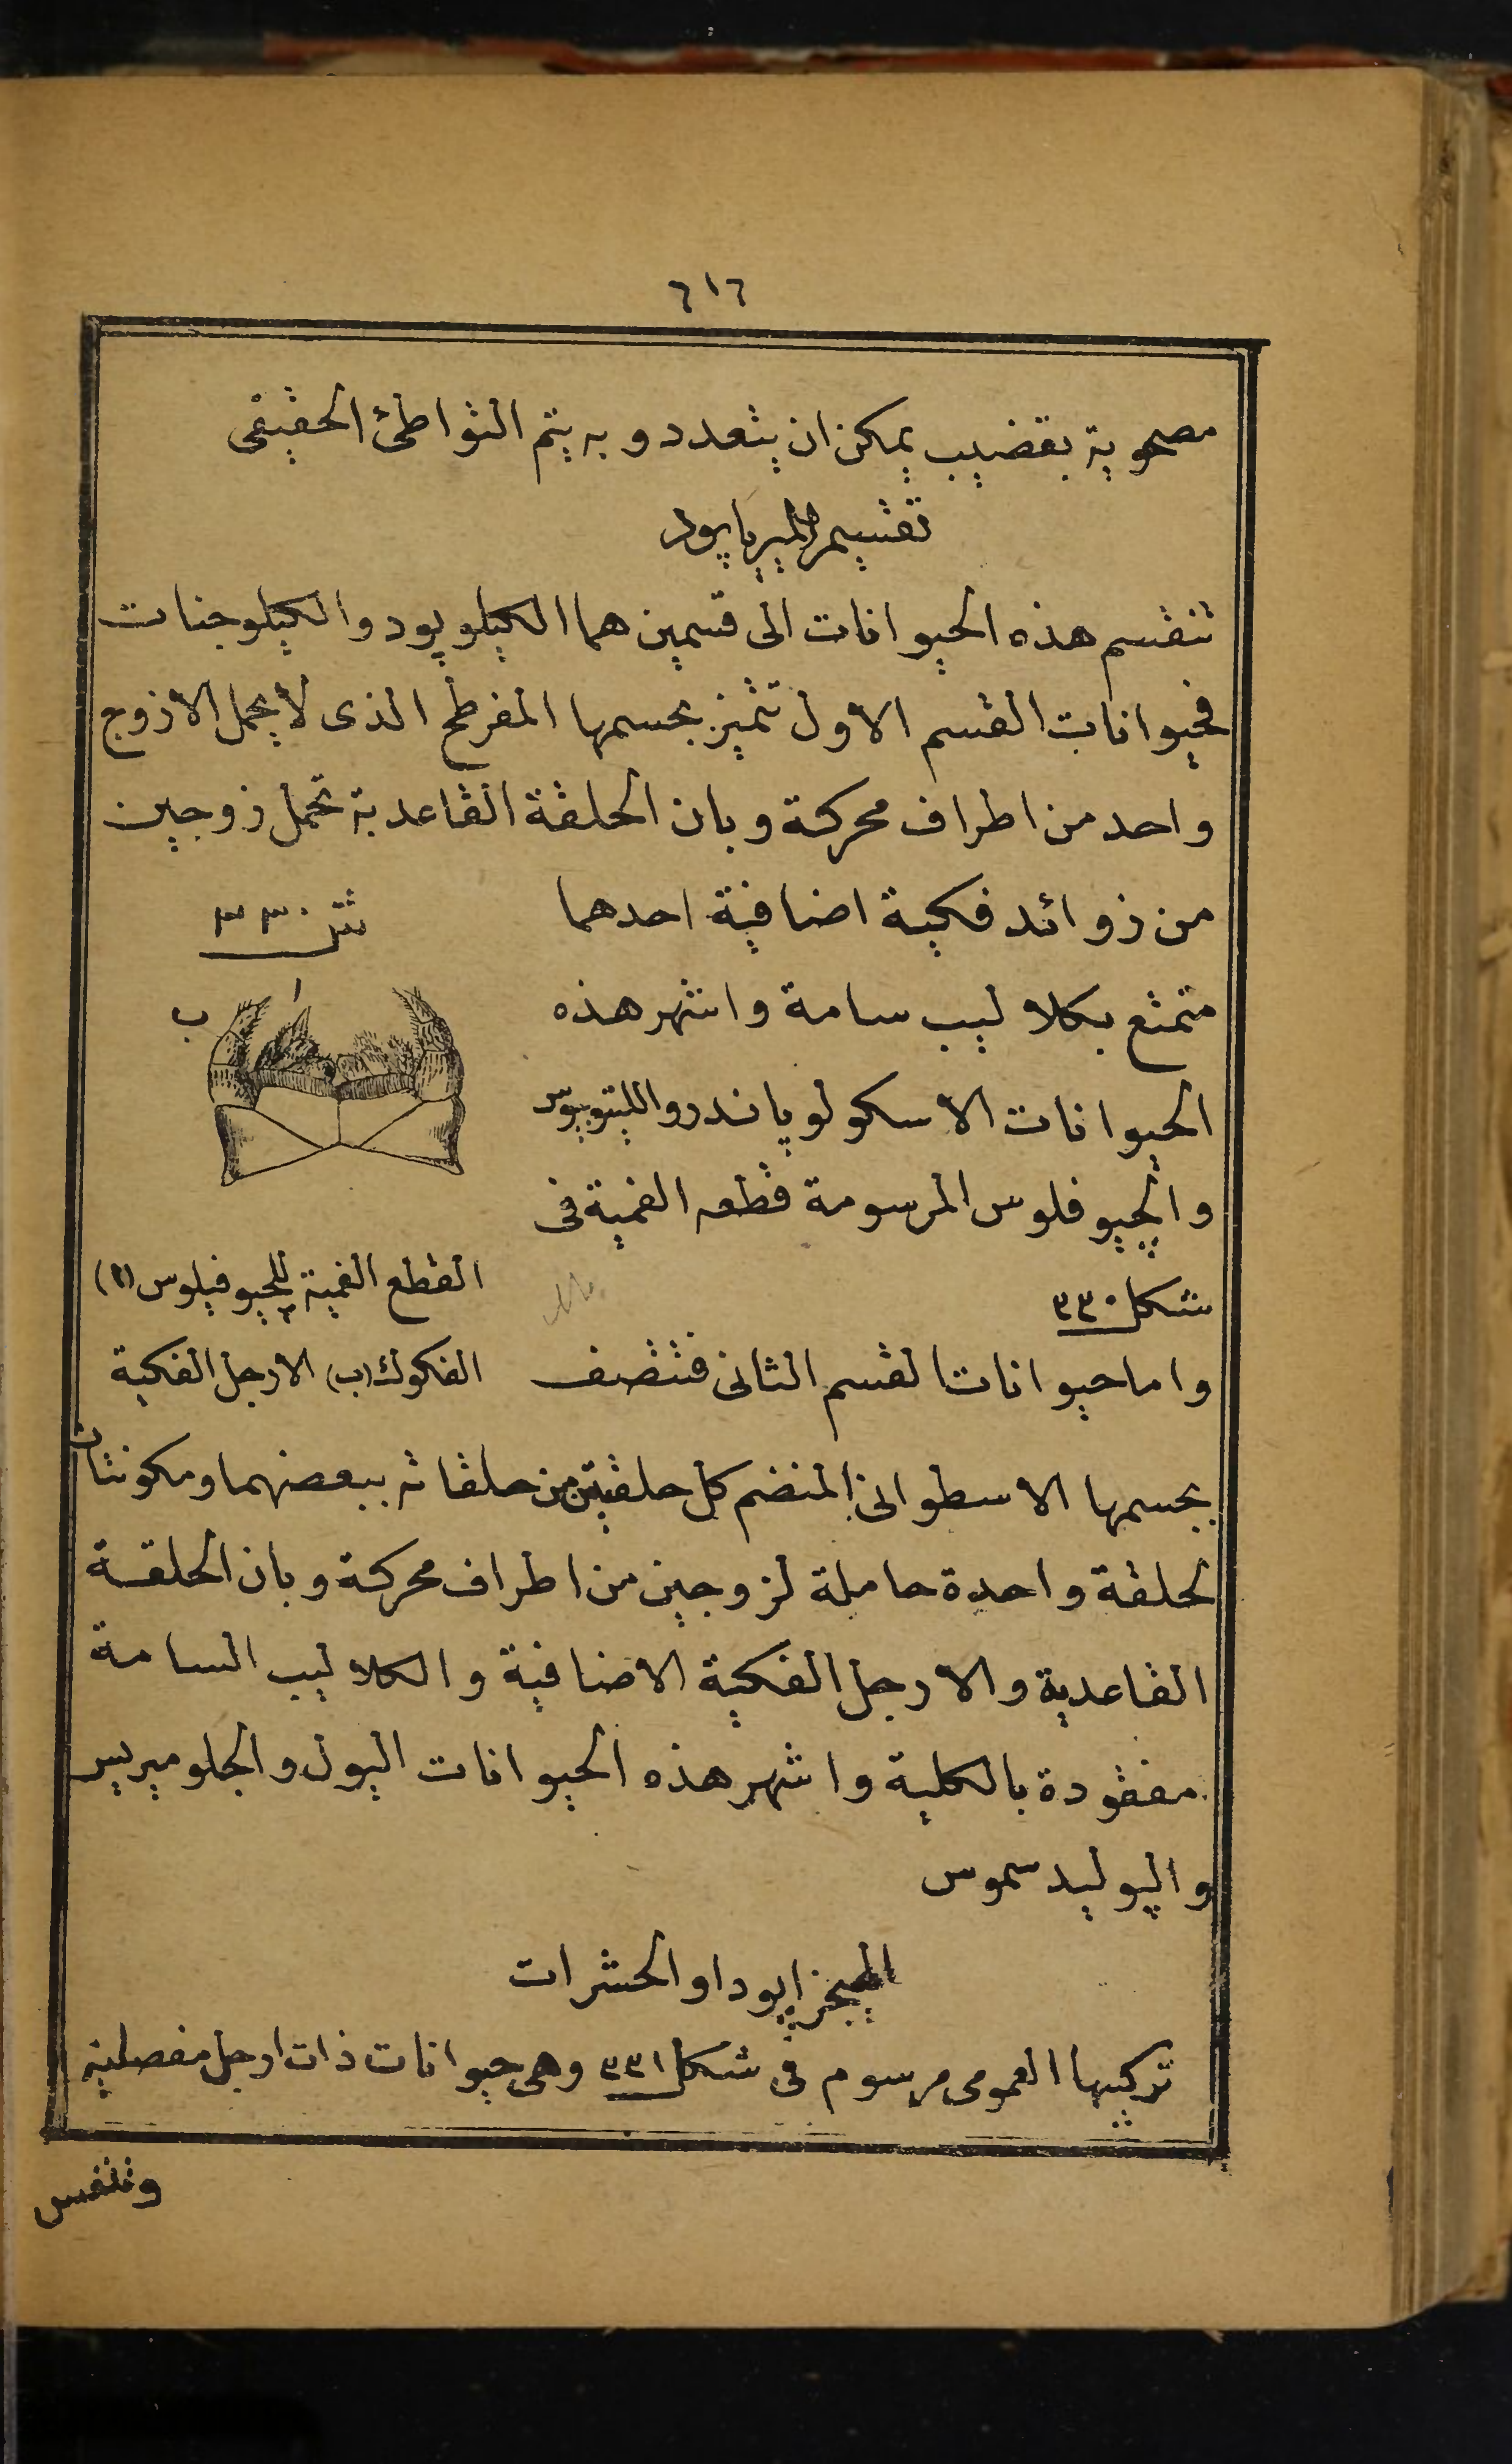 ٦١٦
مصحوبة بقضيب يمكن ان يتعدد وبه يتم التواطئ الحقيقى
تقسيم الميريا پود
تنقسم هذه الحيوانات الى قسمين هما الكيلوپود والكيلوجنات
فحيوانات القسم الاول تتميز بجسمها المفرطح الذى لا يحمل الا زوج
واحد من اطراف محركة وبان الحلقة القاعدية تحمل زوجين
من زوائد فكية اضافية احدهما
متمتع بكلاليب سامة واشهر هذه
الحيوانات الاسكولوپاندر والليتوبيوس
والچيوفلوس المرسومة قطعه الفمية فى
شكل ٣٣٠
شكل ٣٣٠
ا
ب
القطع الفمية للچيوفيلوس (ا)
الفكوك (ب) الارجل الفكية
واما حيوانات القسم الثانى فتتصف
بجسمها الاسطوانى المنضم كل حلقتين من حلقاته ببعضهما ومكونتان
لحلقة واحدة حاملة لزوجين من اطراف محركة وبان الحلقة
القاعدية والارجل الفكية الاضافية والكلاليب السامة
مفقودة بالكلية واشهر هذه الحيوانات اليول والجلوميريس
والپوليدسموس
الهيجزاپود او الحشرات
تركيبها العمومى مرسوم فى شكل ٣٣١ وهى حيوانات ذات ارجل مفصلية
وتتنفس